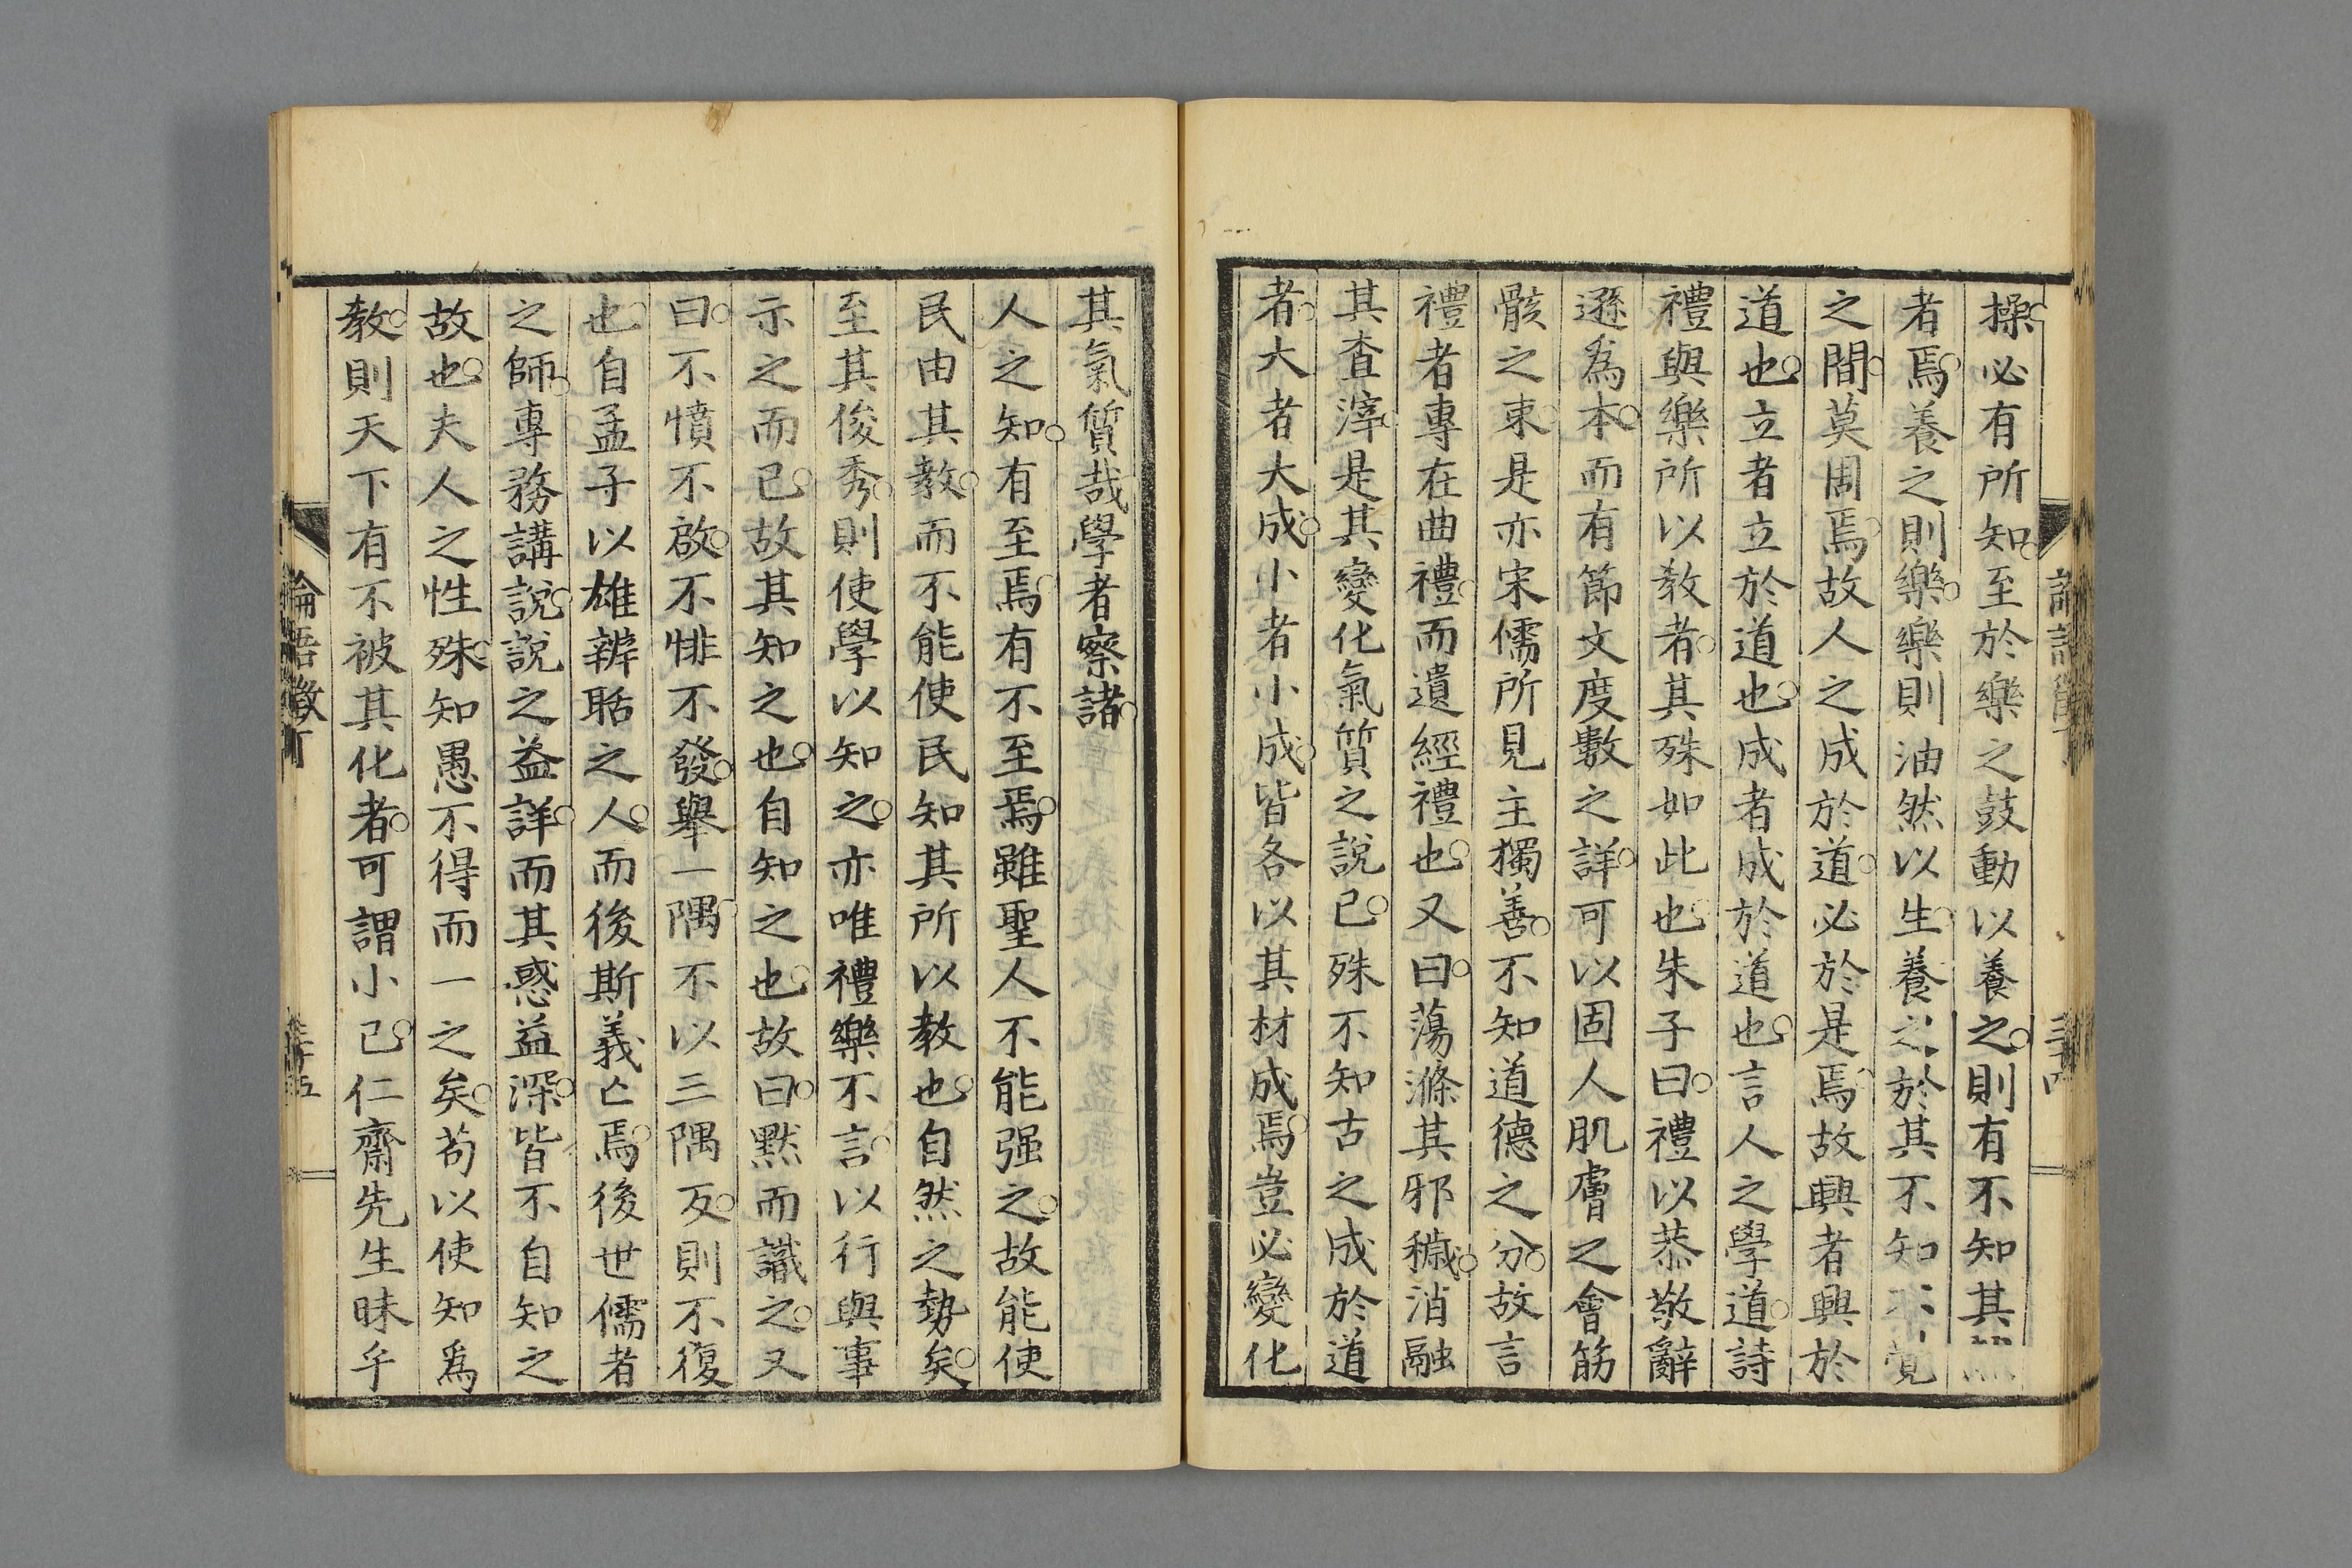 操必有所知至於樂之鼓動以養之則有不知其
者焉養之則樂樂則油然以生養之於其不知不覺
之間莫周焉故人之成於道必於是焉故興者興於
道也立者立於道也成者成於道也言人之學道詩
禮與樂所以教者其殊如此也朱子曰禮以恭敬辭
遜爲本而有節文度數之詳可以固人肌膚之會筋
骸之束是亦宋儒所見主獨善不知道德之分故言
禮者專在曲禮而遺經禮也又曰蕩滌其邪穢消融
其査滓是其變化氣質之說已殊不知古之成於道
者大者大成小者小成皆各以其材成焉豈必變化
其氣質哉學者察諸
人之知有至焉有不至焉雖聖人不能强之故能使
民由其教而不能使民知其所以教也自然之勢矣
至其俊秀則使學以知之亦唯禮樂不言以行與事
示之而已故其知之也自知之也故曰默而識之又
曰不憤不啟不悱不發舉一隅不以三隅反則不復
也自孟子以雄辨聒之人而後斯義亡焉後世儒者
之師專務講說說之益詳而其惑益深皆不自知之
故也夫人之性殊知愚不得而一之矣苟以使知爲
教則天下有不被其化者可謂小已仁齋先生昧乎
論語徵丁